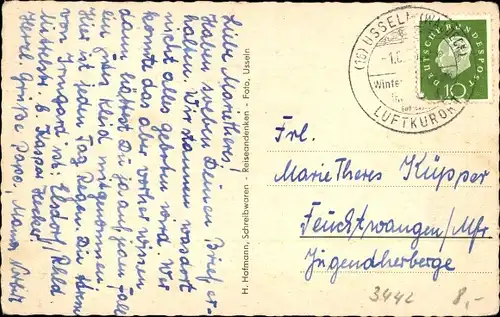 Liebe Marietheres!
Haben soeben Deinen Brief er-
halten. Wir staunen was dort
nicht alles geboten wird. Wer
konnte das aber vorher wissen
dann hättest Du ja auf jeden Fall
ein gutes Kleid mitgenommen.
Hier ist jeden Tag Regen. Die
von Irmgard ist: Elsdorf/Rhld.
b. Kasper
Herzl. Grüße Papa, Mama,
H. Hofmann, Schreibwaren - Reiseandenken - Foto, Usseln
(16) USSELN (WALDECK)
Winter
LUFTKURORT
DEUTSCHE BUNDESPOST
10
Frl.
Marie Theres Küpper
Feuchtwangen/Mfr.
Jugendherberge
3442
8,-